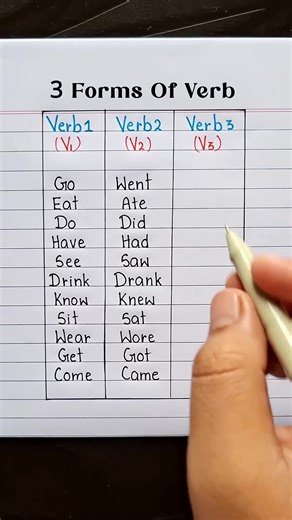 3 Forms Of Verb
Verb1 Verb2 Verb3
(V₁) (V₂) (V₃)
Go Went
Eat Ate
Do Did
Have Had
See Saw
Drink Drank
Know Knew
Sit Sat
Wear Wore
Get Got
Come Came